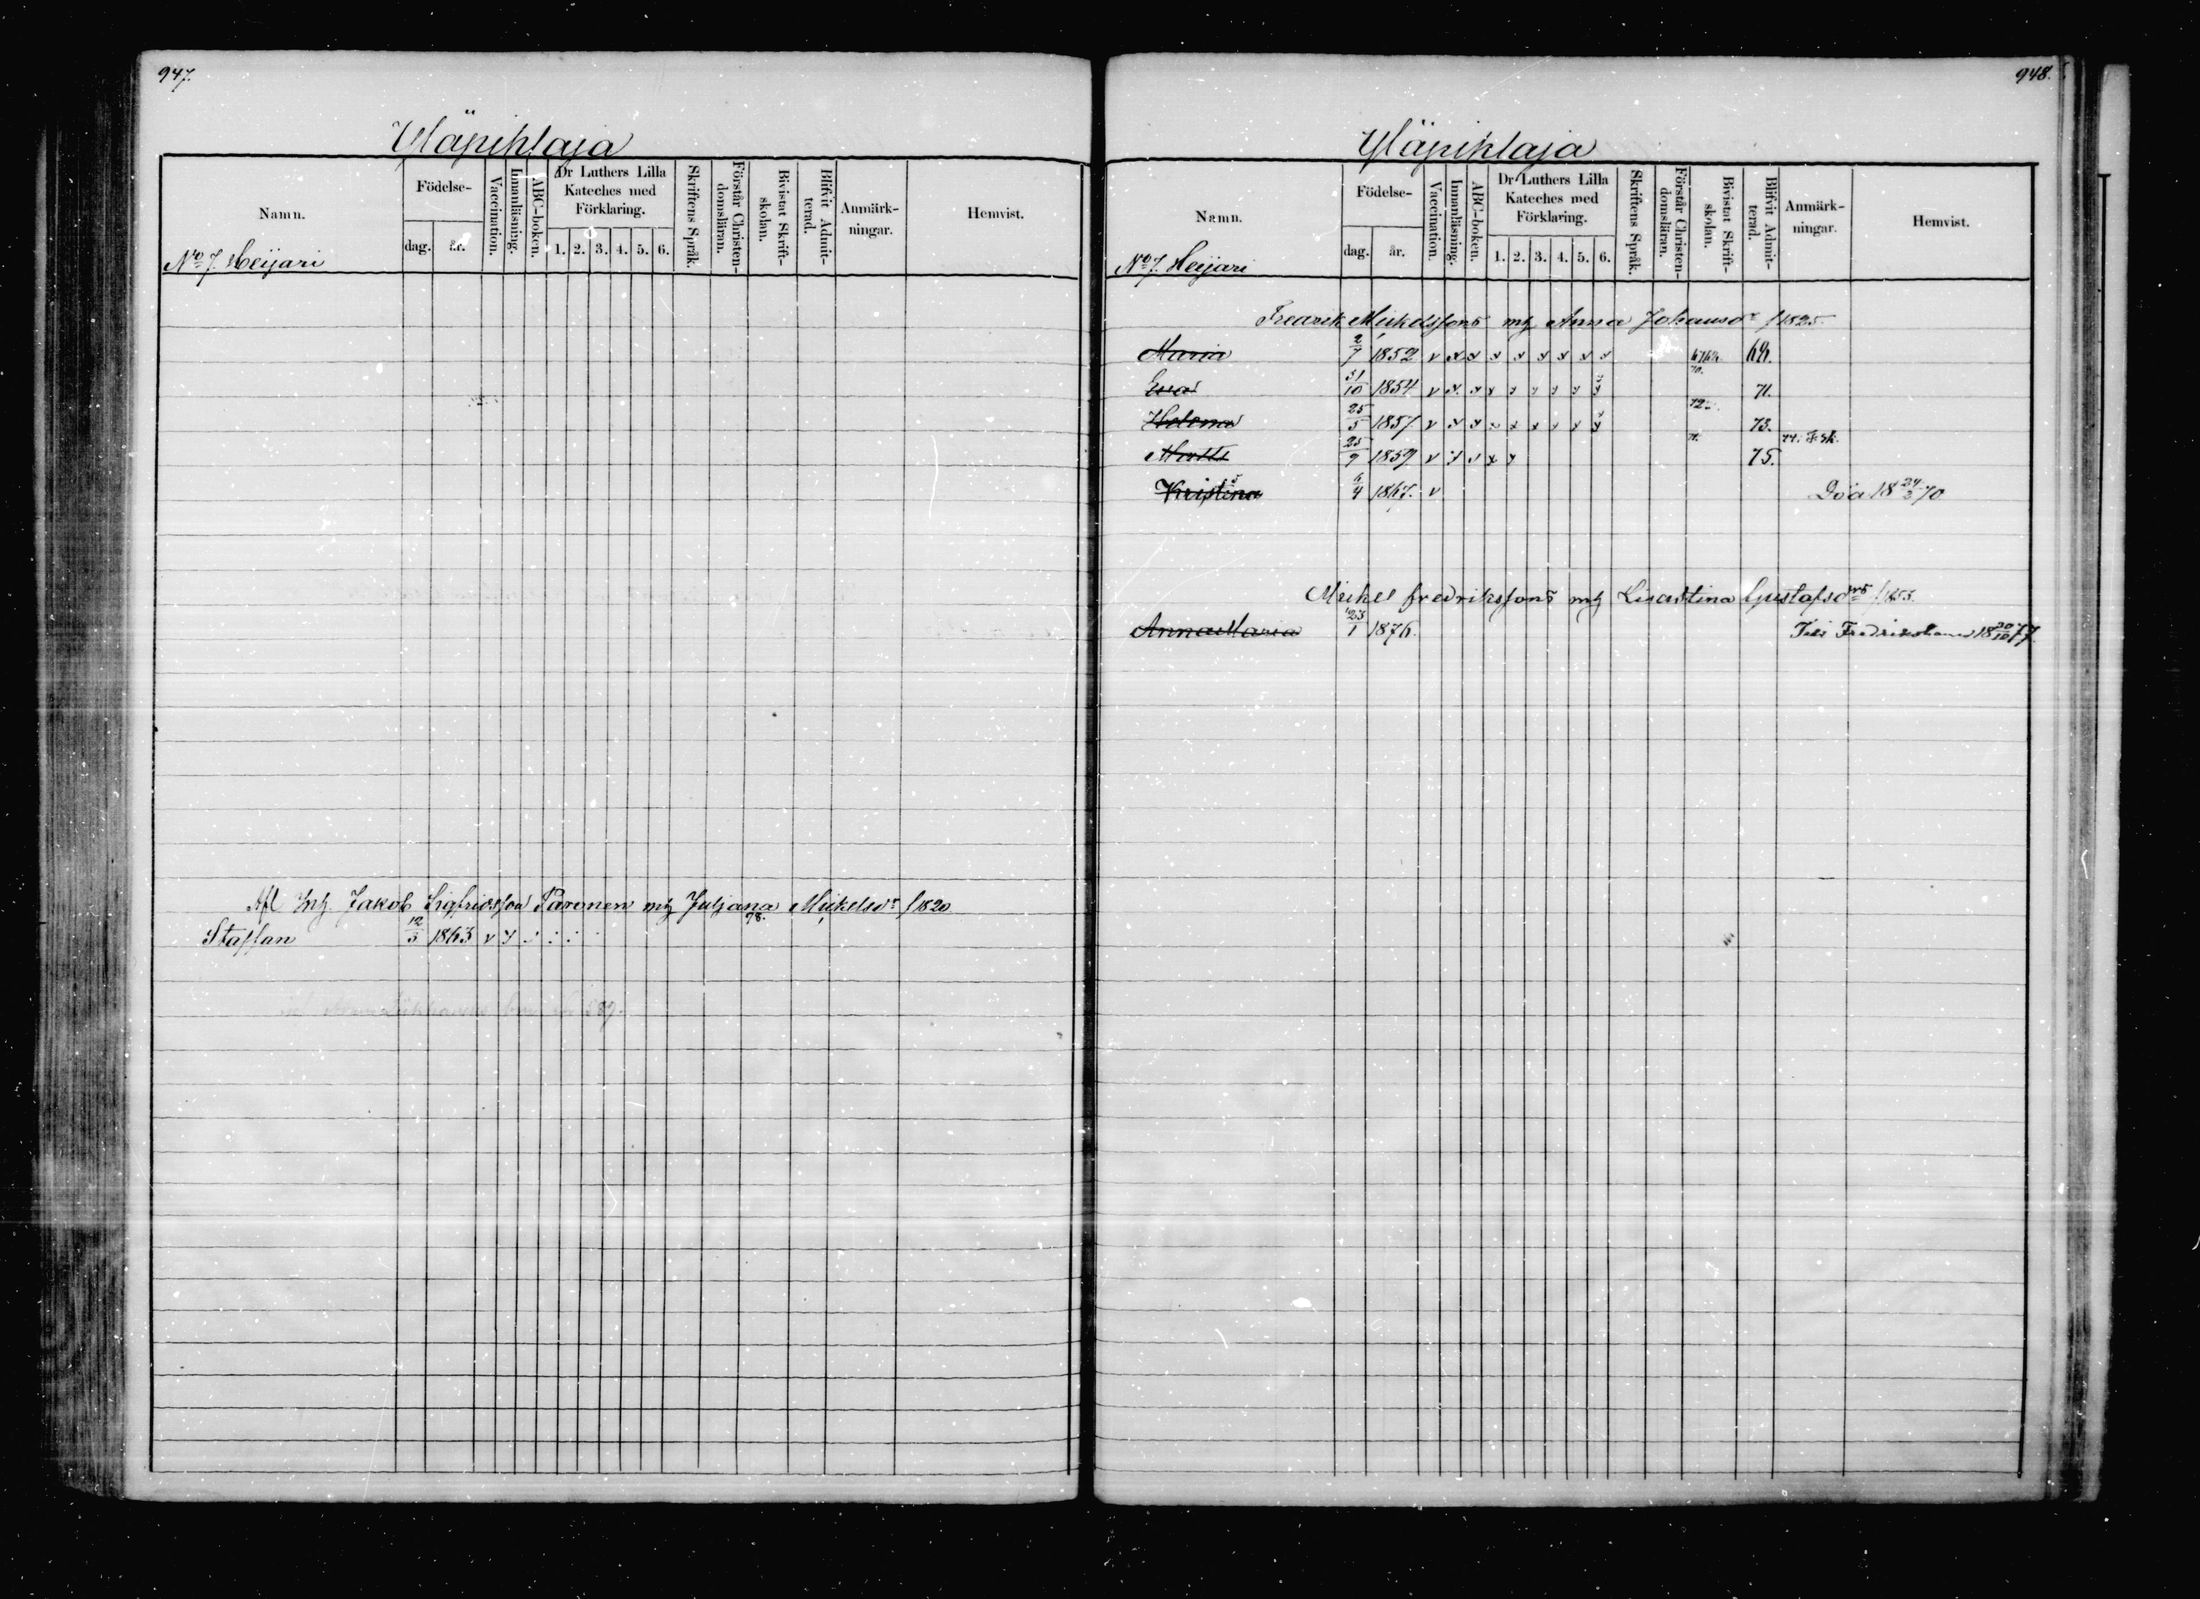 947.
Yläpihlaja
Namn.
Födelse-
dag. år.
Vaccination.
Innanläsning.
ABC-boken.
Dr Luthers Lilla
Kateches med
Förklaring.
1. 2. 3. 4. 5. 6.
Skriftens Språk.
Förstår Christen-
domsläran.
Bivistat Skrift-
skolan.
Blifvit Admit-
terad.
Anmärk-
ningar.
Hemvist.
No 7. Heijari
Afl Inh. Jakob Sigfridsson Paronen mh Juljana Mickelsdr f 1820
78.
Staffan 12/3 1863 v y
89.
948.
Yläpihlaja
Namn.
Födelse-
dag. år.
Vaccination.
Innanläsning.
ABC-boken.
Dr Luthers Lilla
Kateches med
Förklaring.
1. 2. 3. 4. 5. 6.
Skriftens Språk.
Förstår Christen-
domsläran.
Bivistat Skrift-
skolan.
Blifvit Admit-
terad.
Anmärk-
ningar.
Hemvist.
No 7. Heijari
Fredrik Mickelssons mh Anna Johansdr f 1825
Maria 2/7 1852 v x x x x x x x x 69.
Eva 31/10 1854 v x x x y y y y y 70. 71.
Helena 25/5 1857 v x x x x x x x y 72. 73.
Matts 25/9 1859 v y x y 75.
Kristina 6/4 1867. v Död 18 24/2 70
Mickel Fredrikssons mh Lisastina Gustafsdrs f 1853.
Anna Maria 23/1 1876. Till Fredrikshamn 18 20/10 77.